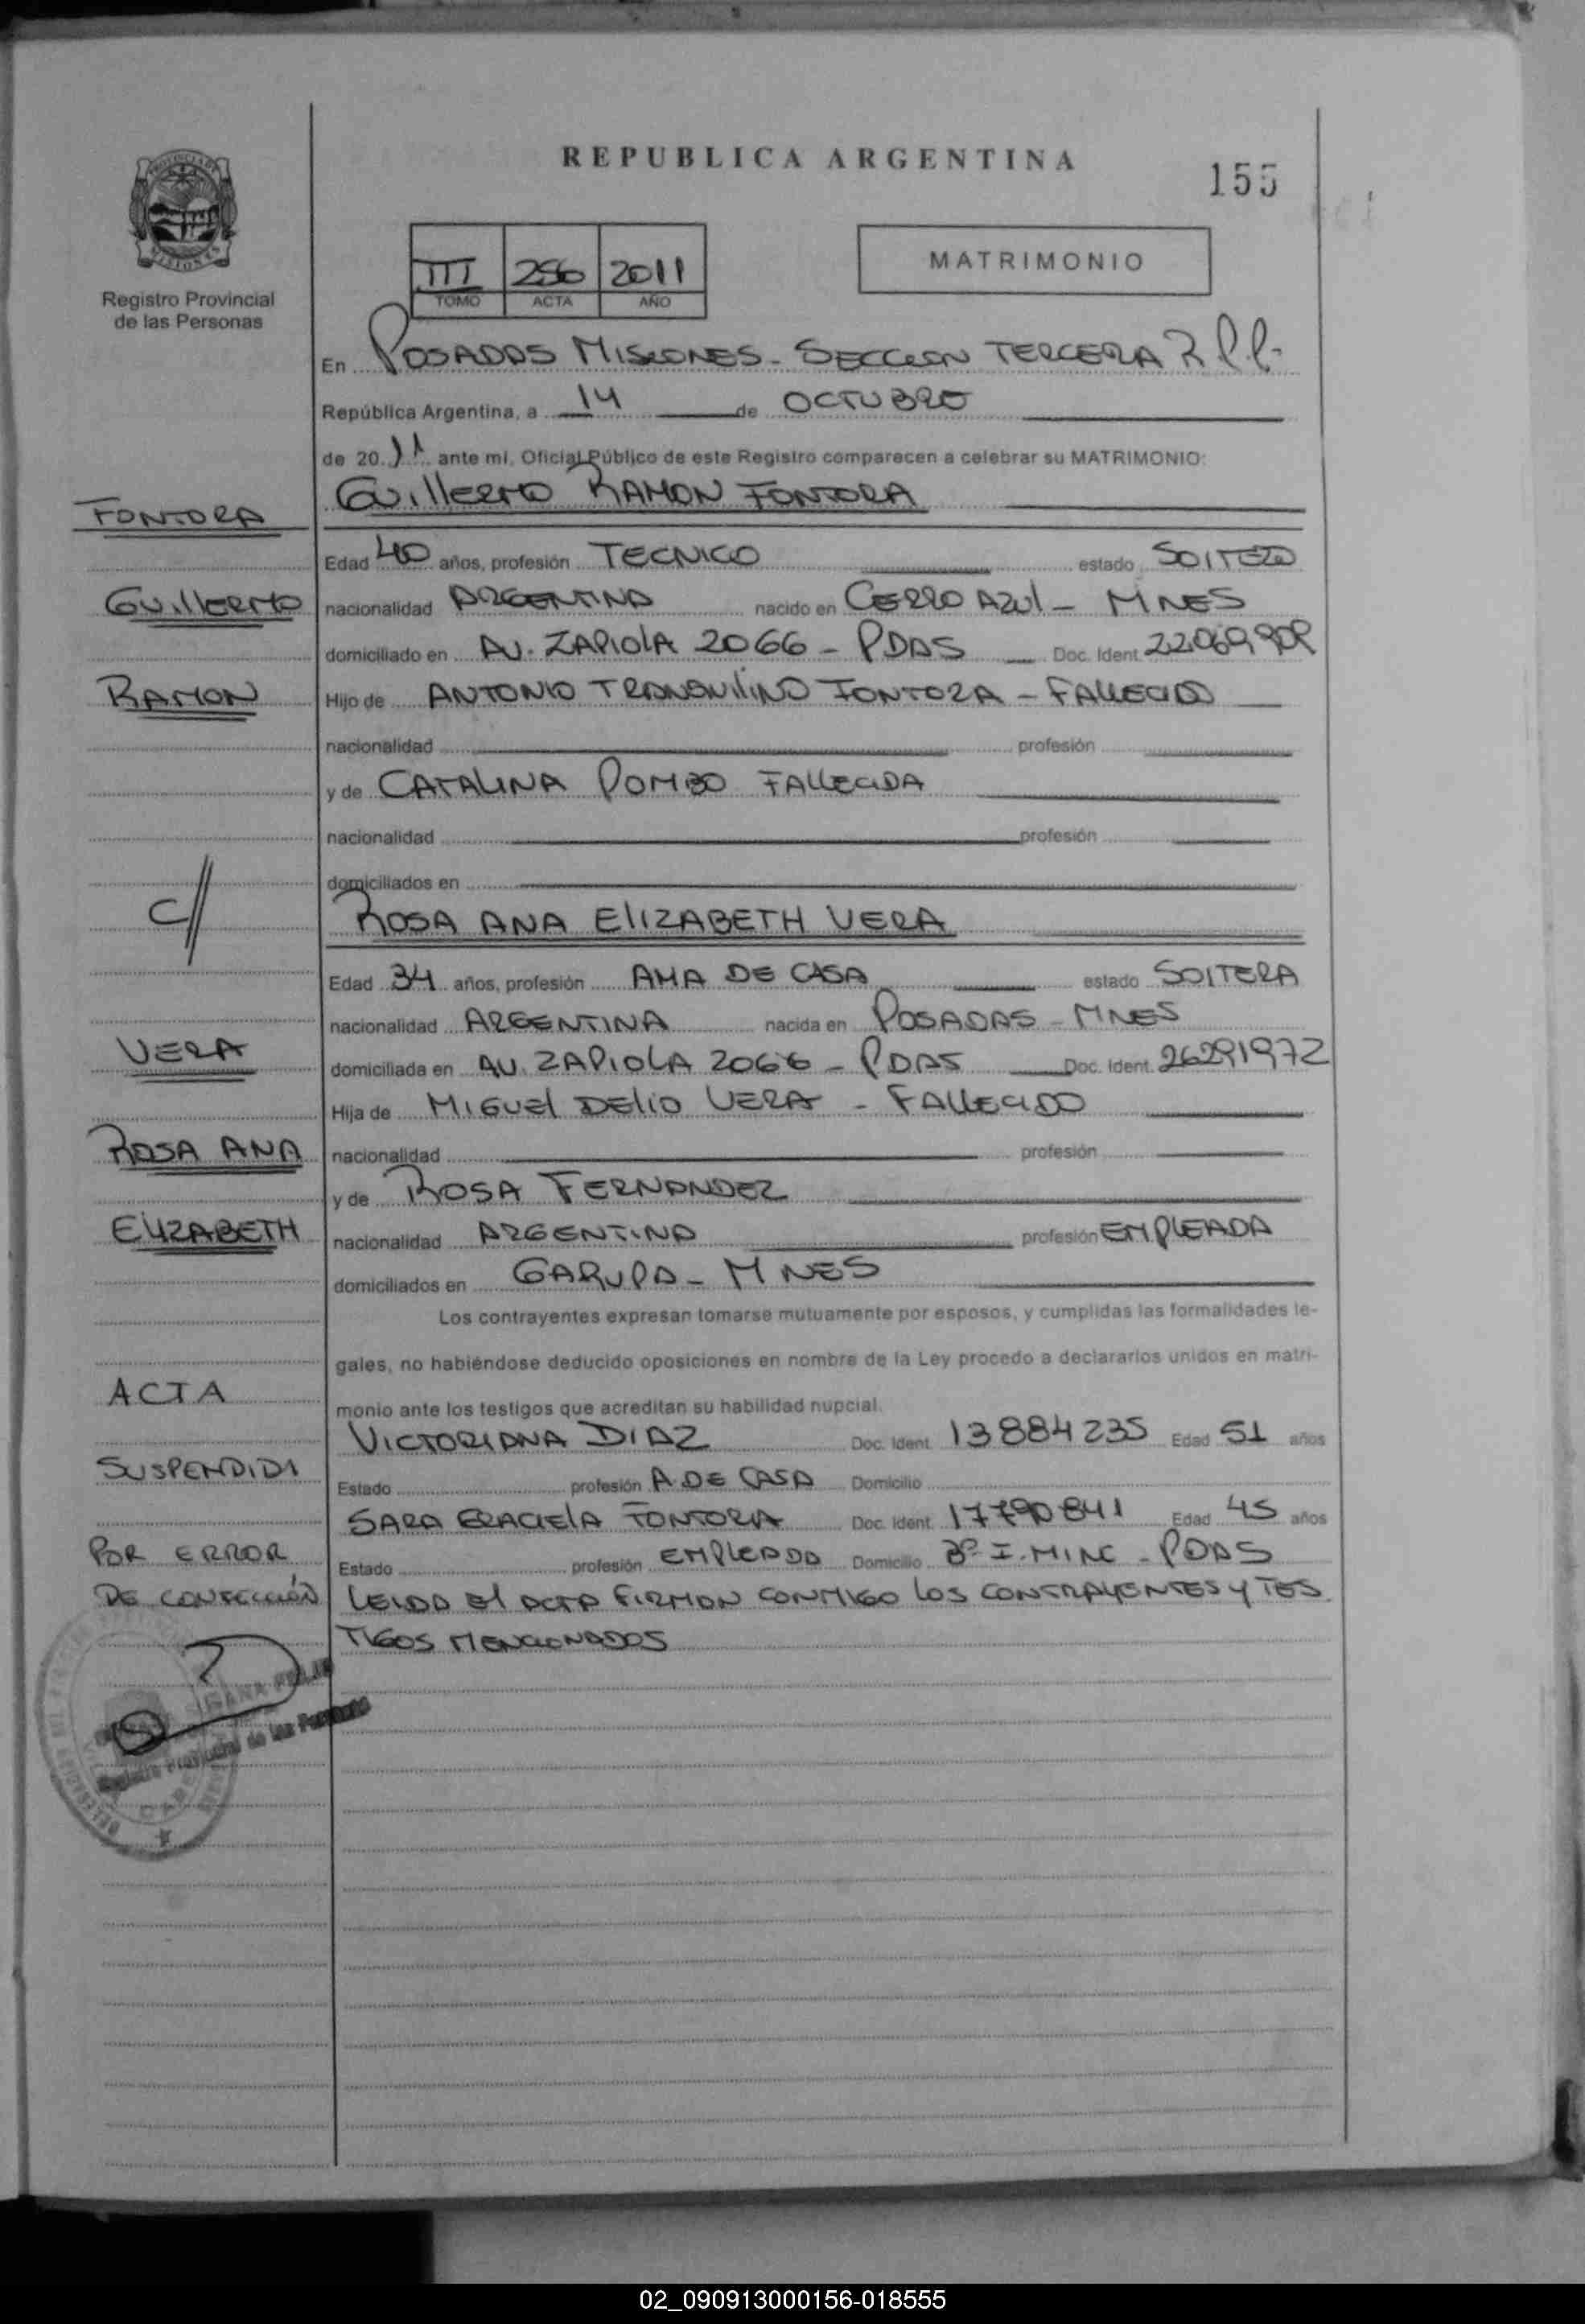 REPUBLICA ARGENTINA
155
Registro Provincial
de las Personas
III 256 2011
TOMO ACTA AÑO
MATRIMONIO
En POSADAS MISIONES - SECCION TERCERA R.P.P.-
República Argentina, a 14 de OCTUBRE
de 20 11 ante mi, Oficial Público de este Registro comparecen a celebrar su MATRIMONIO:
FONTORA
Guillermo RAMON FONTORA
Edad 40 años, profesión TECNICO estado SOlTERO
Guillermo
nacionalidad ARGENTINA nacido en CERRO AZUl - MNES
domiciliado en AV. ZAPIOlA 2066 - PDAS Doc. Ident. 22.069.908
RAMON
Hijo de ANTONIO TRANQUILINO FONTORA - FALLECIDO
nacionalidad profesión
y de CATALINA POMBO FALLECIDA
nacionalidad profesión
domiciliados en
C//
ROSA ANA ElIZABETH VERA
Edad 34 años, profesión AMA DE CASA estado SOlTERA
nacionalidad ARGENTINA nacida en POSADAS - MNES
VERA
domiciliada en AV. ZAPIOLA 2066 - PDAS Doc. Ident. 26291972
Hija de MIGUEl DElIO VERA - FALLECIDO
ROSA ANA
nacionalidad profesión
y de ROSA FERNANDEZ
ELIZABETH
nacionalidad ARGENTINA profesión EMPLEADA
domiciliados en GARUPA - MNES
Los contrayentes expresan tomarse mutuamente por esposos, y cumplidas las formalidades le-
gales, no habiéndose deducido oposiciones en nombre de la Ley procedo a declararlos unidos en matri-
ACTA
monio ante los testigos que acreditan su habilidad nupcial.
VICTORIANA DIAZ Doc. Ident. 13884235 Edad 51 años
SUSPENDIDA
Estado profesión A. DE CASA Domicilio
SARA GRACIElA FONTORA Doc. Ident. 17790841 Edad 45 años
POR ERROR
Estado profesión EMPLEADA Domicilio Bº I. MINC - PDAS
DE CONFECCIÓN
LEIDA El ACTA FIRMAN CONMIGO los CONTRAYENTES y TES
TIGOS MENCIONADOS
Provincial de las Personas
02_090913000156-018555